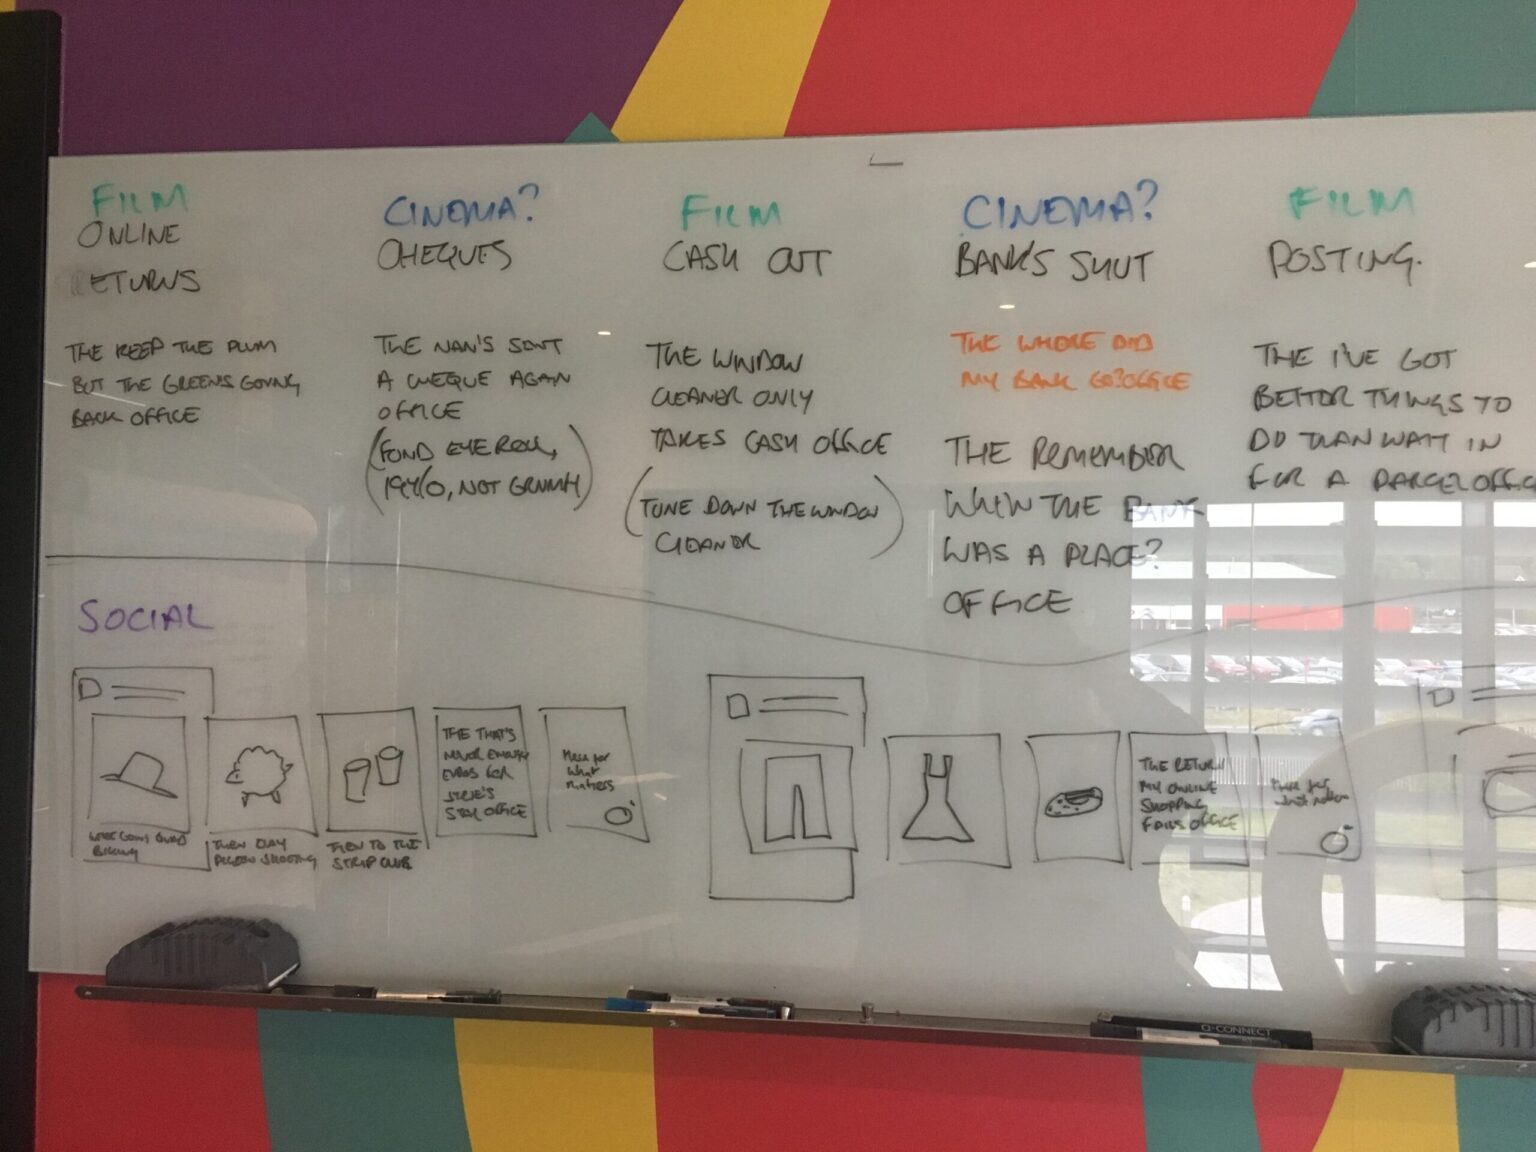 FILM
ONLINE
RETURNS
THE KEEP THE PLUM
BUT THE GREENS GOING
BACK OFFICE
CINEMA?
CHEQUES
THE NAN'S SENT
A CHEQUE AGAIN
OFFICE
(FOND EYE ROLL,
NOT GRUMPY)
FILM
CASH OUT
THE WINDOW
CLEANER ONLY
TAKES CASH OFFICE
(TONE DOWN THE WINDOW
CLEANER)
CINEMA?
BANK'S SHUT
THE WHERE DID
MY BANK GO? OFFICE
THE REMEMBER
WHEN THE BANK
WAS A PLACE?
OFFICE
FILM
POSTING.
THE I'VE GOT
BETTER THINGS TO
DO THAN WAIT IN
FOR A PARCEL OFFIC
SOCIAL
WE'RE GOING QUAD
BIKING
THEN CLAY
PIGEON SHOOTING
THEN TO THE
STRIP CLUB
THE THAT'S
NEVER ENOUGH
EUROS FOR
STAG OFFICE
Here for
what
matters
THE RETURN
MY ONLINE
SHOPPING
FAILS OFFICE
Here for
what matters
Q-CONNECT